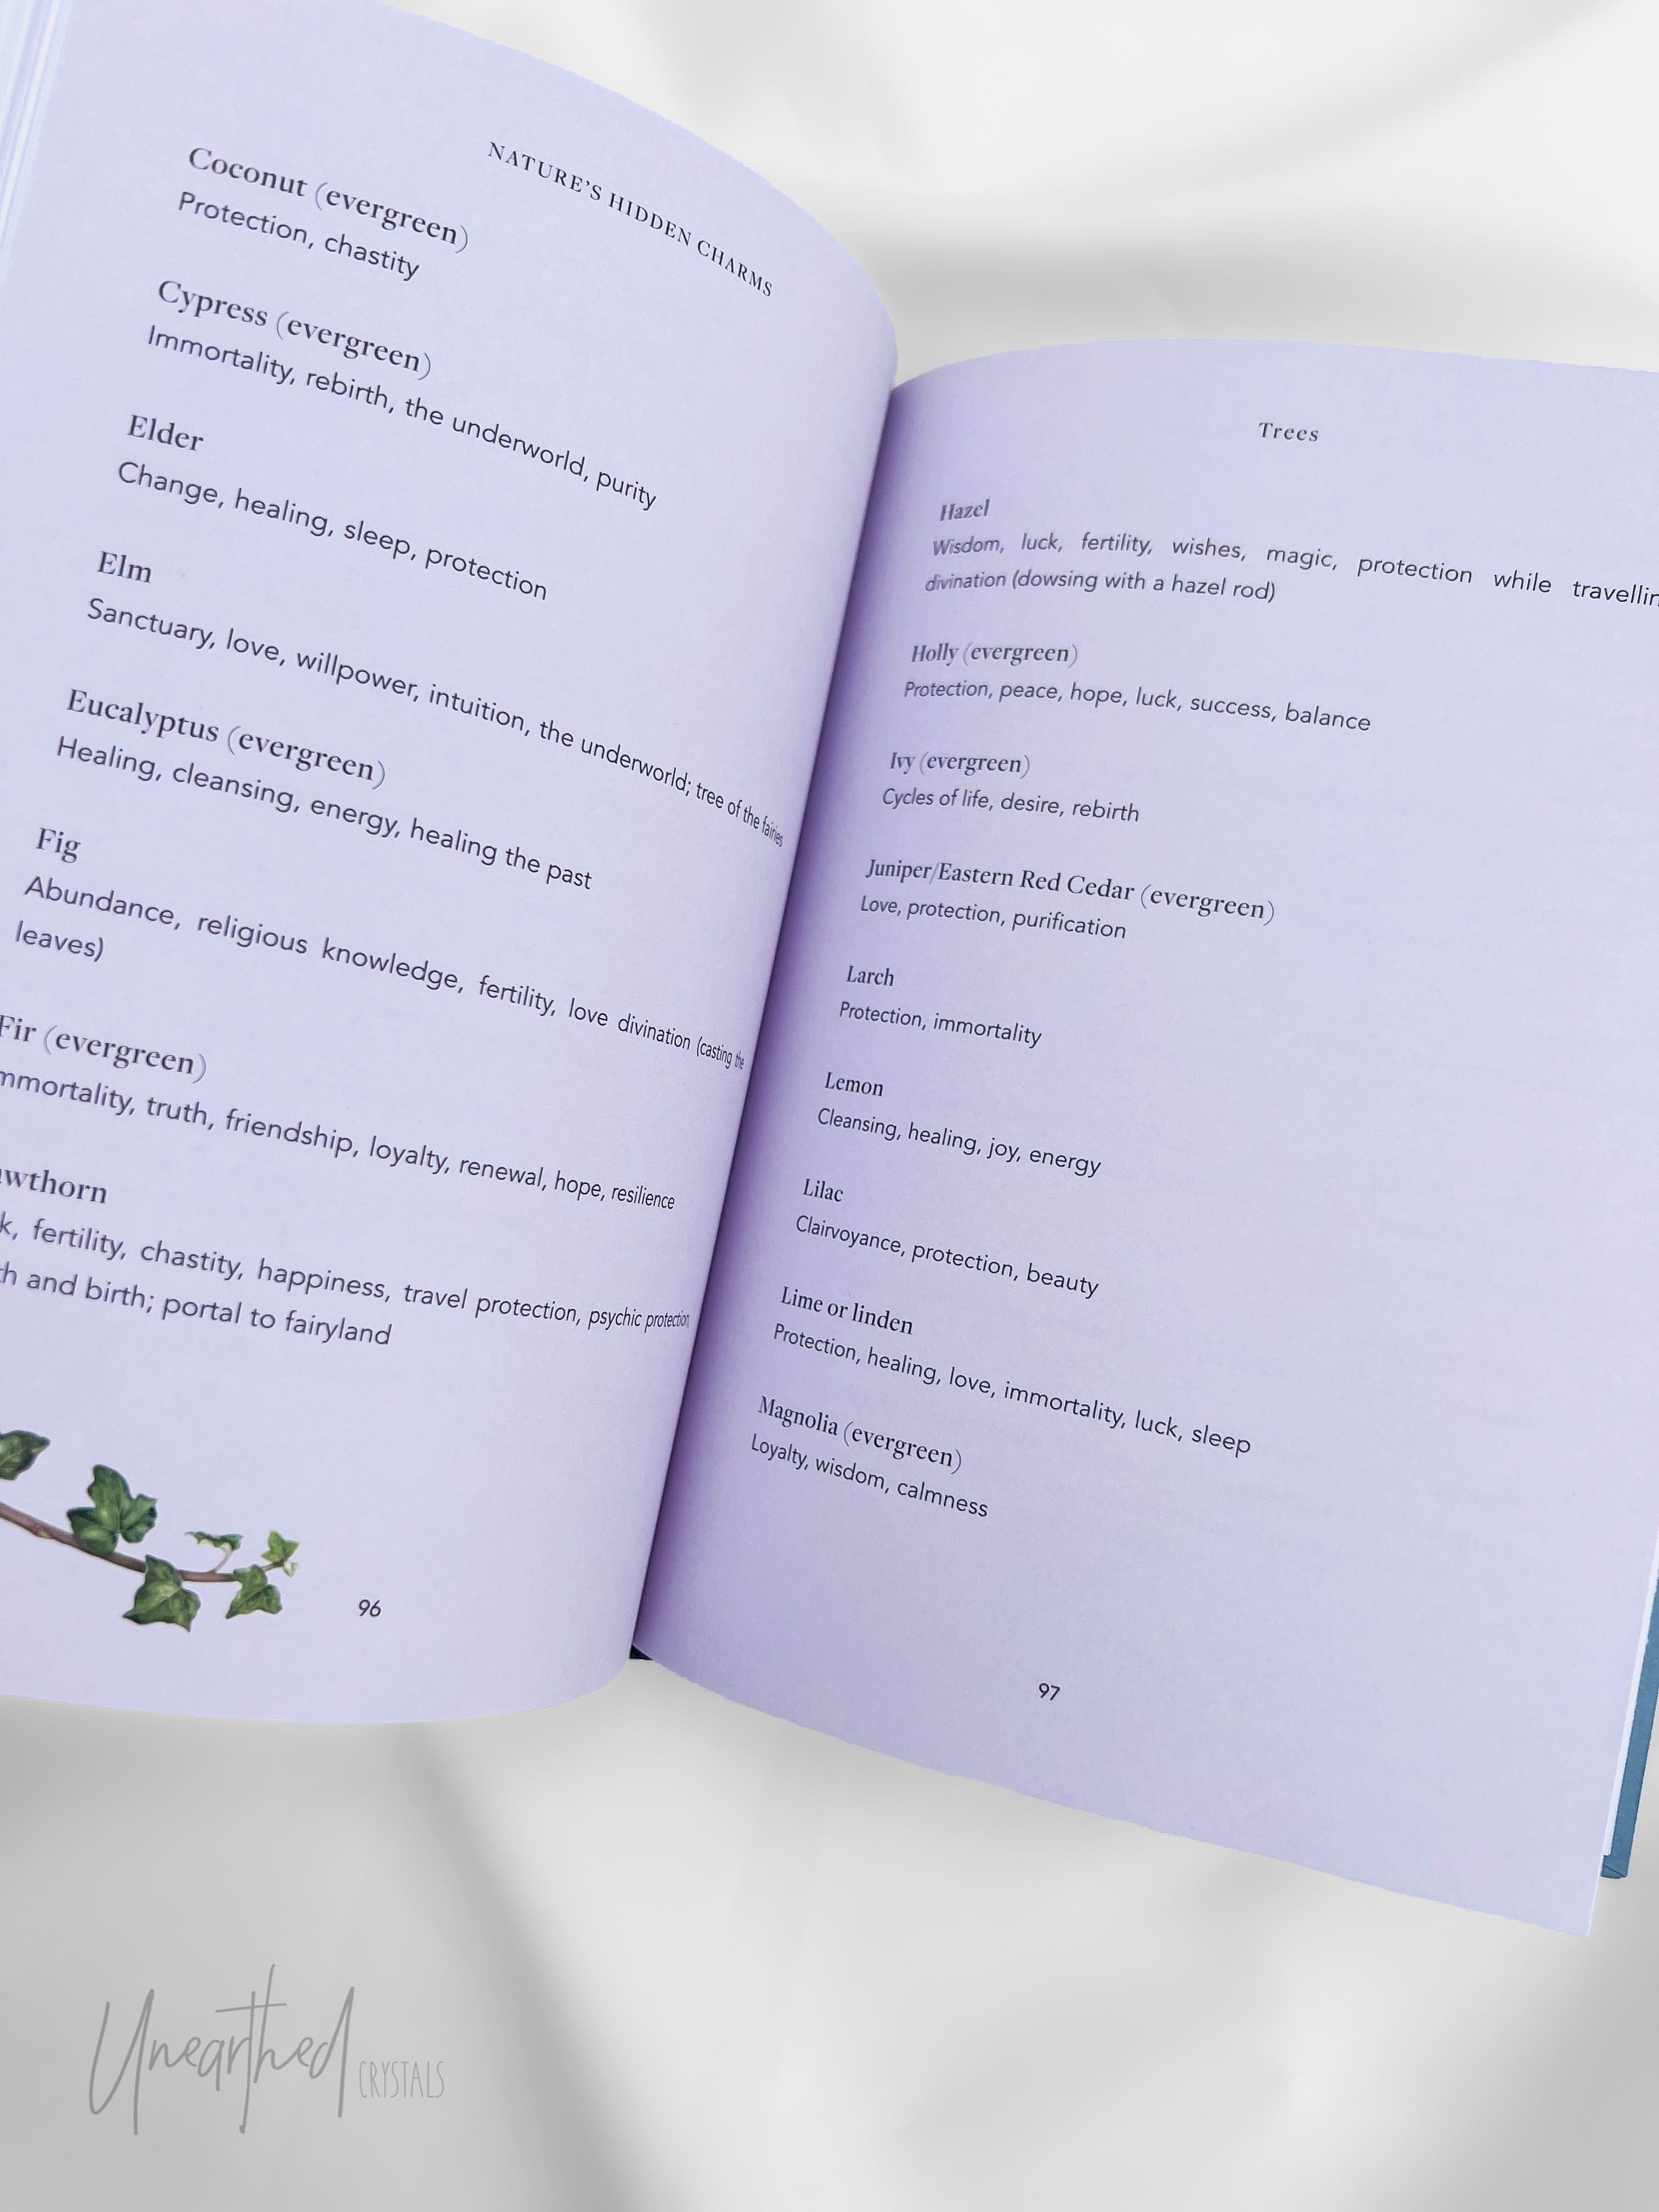 NATURE'S HIDDEN CHARMS
Coconut (evergreen)
Protection, chastity
Cypress (evergreen)
Immortality, rebirth, the underworld, purity
Elder
Change, healing, sleep, protection
Elm
Sanctuary, love, willpower, intuition, the underworld; tree of the fairies
Eucalyptus (evergreen)
Healing, cleansing, energy, healing the past
Fig
Abundance, religious knowledge, fertility, love divination (casting the
leaves)
Fir (evergreen)
mmortality, truth, friendship, loyalty, renewal, hope, resilience
wthorn
k, fertility, chastity, happiness, travel protection, psychic protection,
th and birth; portal to fairyland
96
Trees
Hazel
Wisdom, luck, fertility, wishes, magic, protection while travellin
divination (dowsing with a hazel rod)
Holly (evergreen)
Protection, peace, hope, luck, success, balance
Ivy (evergreen)
Cycles of life, desire, rebirth
Juniper/Eastern Red Cedar (evergreen)
Love, protection, purification
Larch
Protection, immortality
Lemon
Cleansing, healing, joy, energy
Lilac
Clairvoyance, protection, beauty
Lime or linden
Protection, healing, love, immortality, luck, sleep
Magnolia (evergreen)
Loyalty, wisdom, calmness
97
Unearthed CRYSTALS